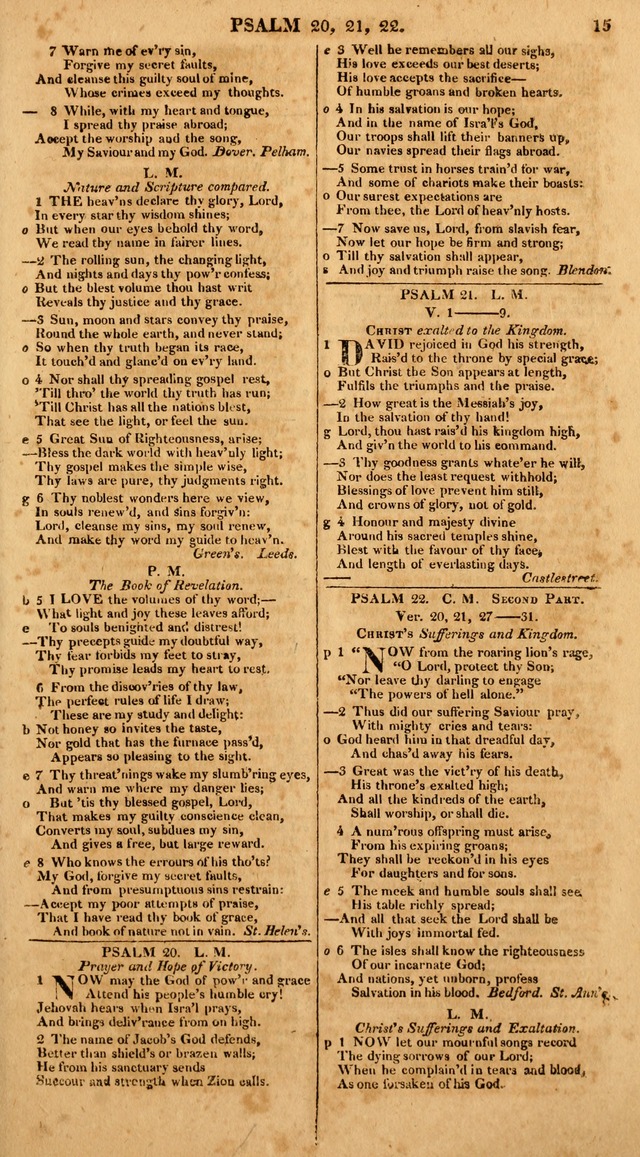 PSALM 20, 21, 22. 15
7 Warn me of ev'ry sin,
Forgive my secret faults,
And cleanse this guilty soul of mine,
Whose crimes exceed my thoughts.
— 8 While, with my heart and tongue,
I spread thy praise abroad;
Accept the worship and the song,
My Saviour and my God. Dover. Pelham.
L. M.
Nature and Scripture compared.
1 THE heav'ns declare thy glory, Lord,
In every star thy wisdom shines;
o But when our eyes behold thy word,
We read thy name in fairer lines.
—2 The rolling sun, the changing light,
And nights and days thy pow'r confess;
o But the blest volume thou hast writ
Reveals thy justice and thy grace.
—3 Sun, moon and stars convey thy praise,
Round the whole earth, and never stand;
o So when thy truth began its race,
It touch'd and glanc'd on ev'ry land.
o 4 Nor shall thy spreading gospel rest,
'Till thro' the world thy truth has run;
'Till Christ has all the nations blest,
That see the light, or feel the sun.
e 5 Great Sun of Righteousness, arise;
—Bless the dark world with heav'nly light;
Thy gospel makes the simple wise,
Thy laws are pure, thy judgments right.
g 6 Thy noblest wonders here we view,
In souls renew'd, and sins forgiv'n:
Lord, cleanse my sins, my soul renew,
And make thy word my guide to heav'n.
Green's. Leeds.
P. M.
The Book of Revelation.
b 5 I LOVE the volumes of thy word;—
What light and joy these leaves afford;
e To souls benighted and distrest!
—Thy precepts guide my doubtful way,
Thy fear forbids my feet to stray,
Thy promise leads my heart to rest.
6 From the discov'ries of thy law,
The perfect rules of life I draw;
These are my study and delight:
b Not honey so invites the taste,
Nor gold that has the furnace pass'd,
Appears so pleasing to the sight.
e 7 Thy threat'nings wake my slumb'ring eyes,
And warn me where my danger lies;
o But 'tis thy blessed gospel, Lord,
That makes my guilty conscience clean,
Converts my soul, subdues my sin,
And gives a free, but large reward.
e 8 Who knows the errours of his tho'ts?
My God, forgive my secret faults,
And from presumptuous sins restrain:
—Accept my poor attempts of praise,
That I have read thy book of grace,
And book of nature not in vain. St. Helen's.
PSALM 20. L. M.
Prayer and Hope of Victory.
1 NOW may the God of pow'r and grace
Attend his people's humble cry!
Jehovah hears when Isra'l prays,
And brings deliv'rance from on high.
2 The name of Jacob's God defends,
Better than shield's or brazen walls;
He from his sanctuary sends
Succour and strength when Zion calls.
e 3 Well he remembers all our sighs,
His love exceeds our best deserts;
His love accepts the sacrifice—
Of humble groans and broken hearts.
o 4 In his salvation is our hope;
And in the name of Isra'l's God,
Our troops shall lift their banners up,
Our navies spread their flags abroad.
—5 Some trust in horses train'd for war,
And some of chariots make their boasts:
o Our surest expectations are
From thee, the Lord of heav'nly hosts.
—7 Now save us, Lord, from slavish fear,
Now let our hope be firm and strong;
o Till thy salvation shall appear,
s And joy and triumph raise the song. Blendon.
PSALM 21. L. M.
V. 1——9.
CHRIST exalted to the Kingdom.
1 DAVID rejoiced in God his strength,
Rais'd to the throne by special grace;
o But Christ the Son appears at length,
Fulfils the triumphs and the praise.
—2 How great is the Messiah's joy,
In the salvation of thy hand!
g Lord, thou hast rais'd his kingdom high,
And giv'n the world to his command.
—3 Thy goodness grants whate'er he will,
Nor does the least request withhold;
Blessings of love prevent him still,
And crowns of glory, not of gold.
g 4 Honour and majesty divine
Around his sacred temples shine,
Blest with the favour of thy face,
And length of everlasting days.
—— Castlestreet.
PSALM 22. C. M. SECOND PART.
Ver. 20, 21, 27——31.
CHRIST'S Sufferings and Kingdom.
p 1 "NOW from the roaring lion's rage,
"O Lord, protect thy Son;
"Nor leave thy darling to engage
"The powers of hell alone."
—2 Thus did our suffering Saviour pray,
With mighty cries and tears:
o God heard him in that dreadful day,
And chas'd away his fears.
—3 Great was the vict'ry of his death,
His throne's exalted high;
And all the kindreds of the earth,
Shall worship, or shall die.
4 A num'rous offspring must arise,
From his expiring groans;
They shall be reckon'd in his eyes
For daughters and for sons.
e 5 The meek and humble souls shall see
His table richly spread;
—And all that seek the Lord shall be
With joys immortal fed.
o 6 The isles shall know the righteousness
Of our incarnate God;
And nations, yet unborn, profess
Salvation in his blood. Bedford. St. Ann's.
L. M.
Christ's Sufferings and Exaltation.
p 1 NOW let our mournful songs record
The dying sorrows of our Lord;
When he complain'd in tears and blood,
As one forsaken of his God.